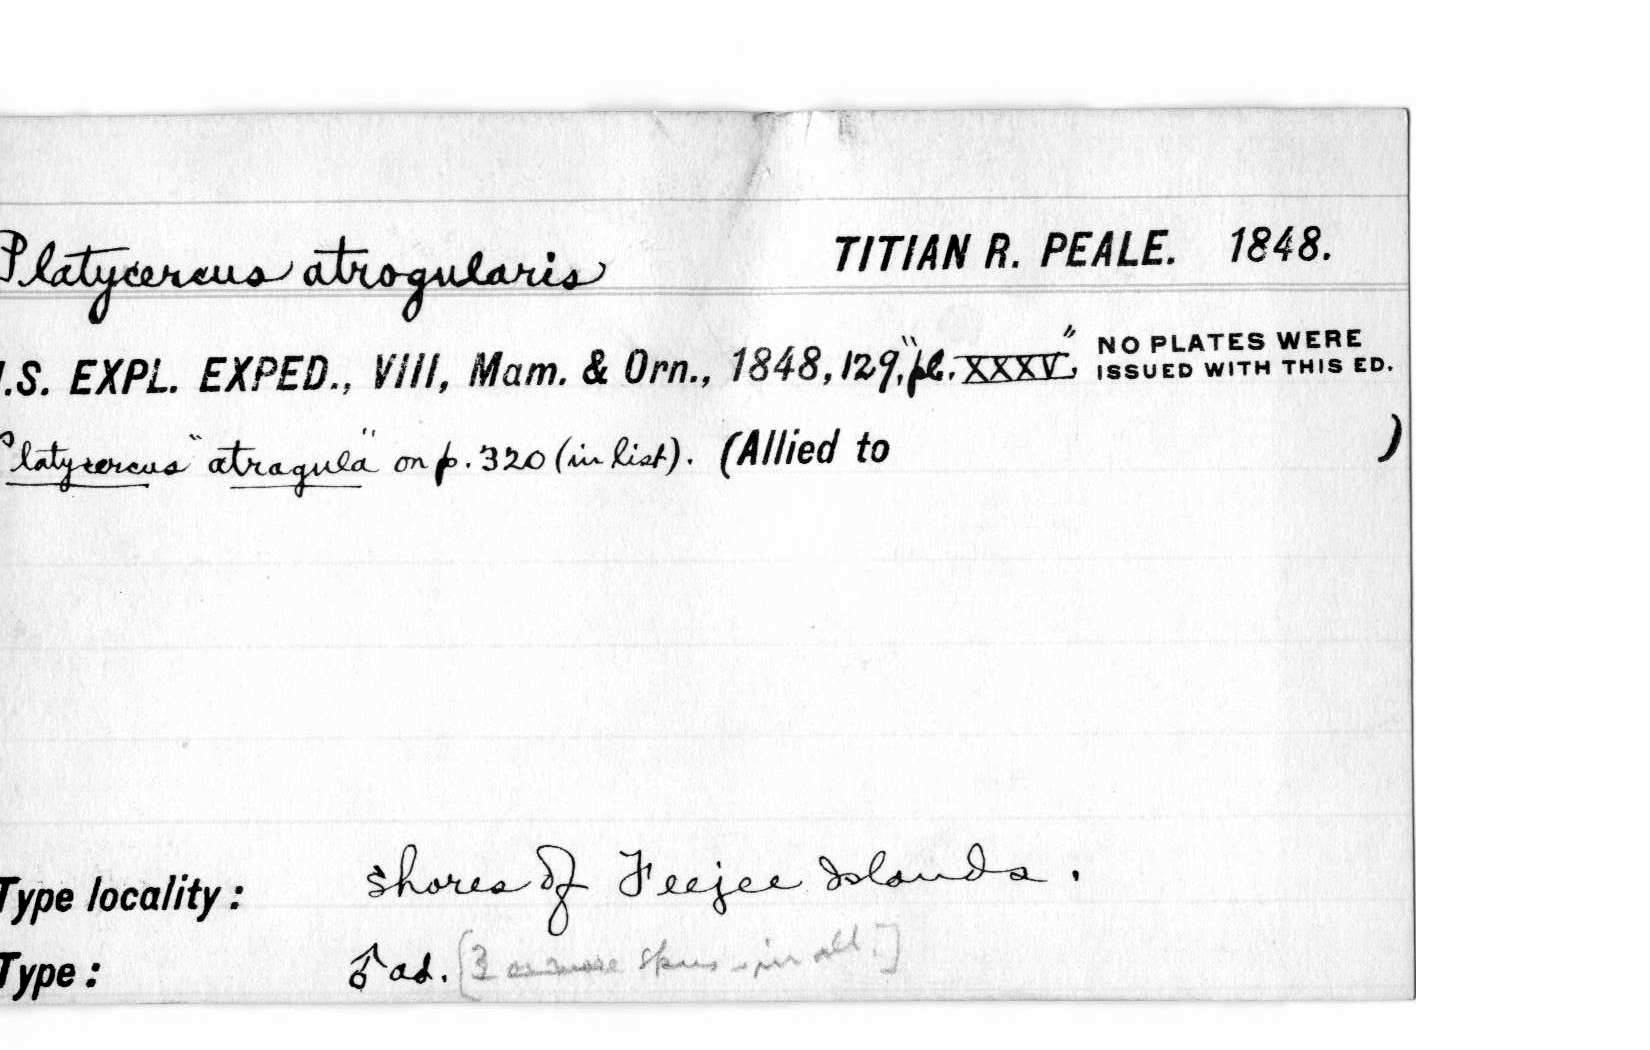 Platycercus atrogularis TITIAN R. PEALE. 1848.
.S. EXPL. EXPED., VIII, Mam. & Orn., 1848, 129, "pl. XXXV", NO PLATES WERE ISSUED WITH THIS ED.
Platycercus "atragula" on p. 320 (in list). (Allied to )
Type locality: shores of Feejee Islands.
Type: ♂ ad. [3 or more spms. in all.]